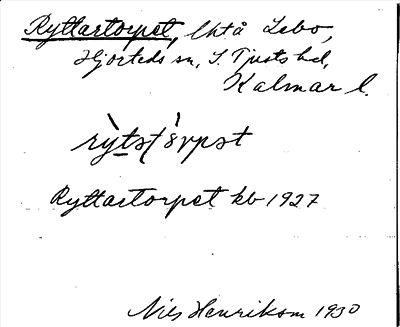 Ryttartorpet, Uktå Lebo,
Hjorteds sn, S. Tjusts hd,
Kalmar l.
Ryttartorpet kb 1927
Nils Henrikson 1930